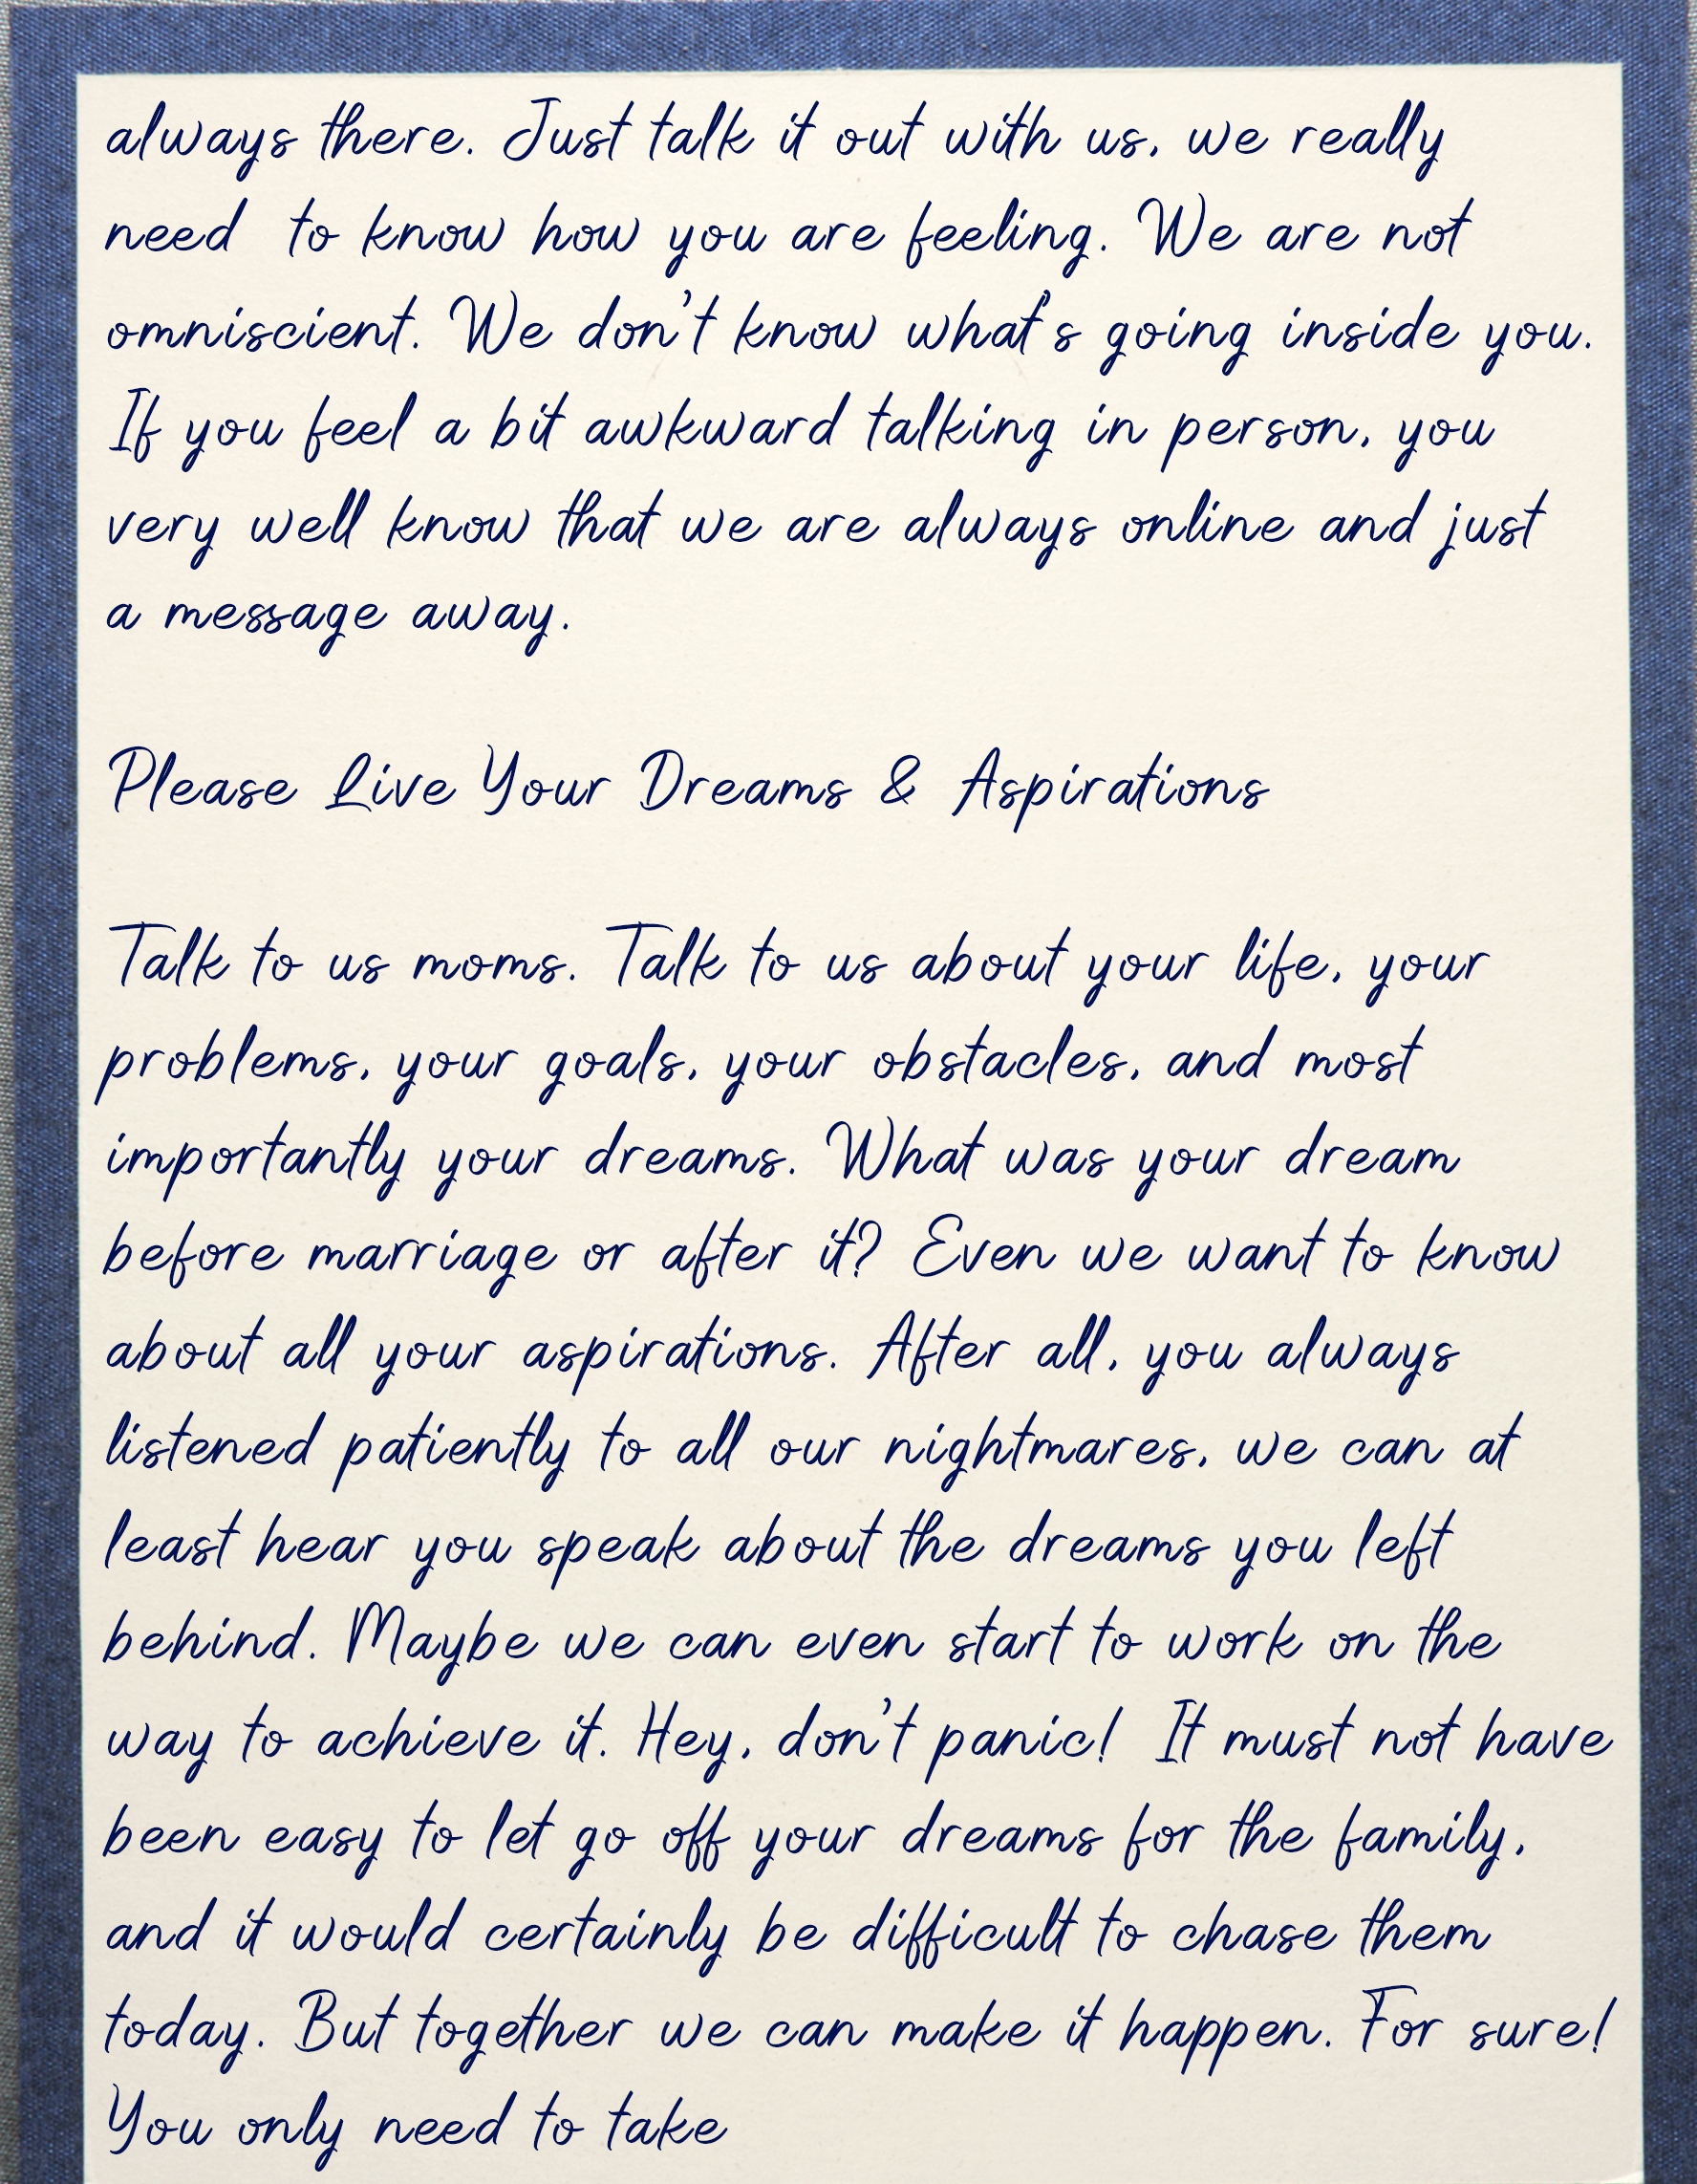 always there. Just talk it out with us, we really
need to know how you are feeling. We are not
omniscient. We don't know what's going inside you.
If you feel a bit awkward talking in person, you
very well know that we are always online and just
a message away.
Please Live Your Dreams & Aspirations
Talk to us moms. Talk to us about your life, your
problems, your goals, your obstacles, and most
importantly your dreams. What was your dream
before marriage or after it? Even we want to know
about all your aspirations. After all, you always
listened patiently to all our nightmares, we can at
least hear you speak about the dreams you left
behind. Maybe we can even start to work on the
way to achieve it. Hey, don't panic! It must not have
been easy to let go off your dreams for the family,
and it would certainly be difficult to chase them
today. But together we can make it happen. For sure!
You only need to take